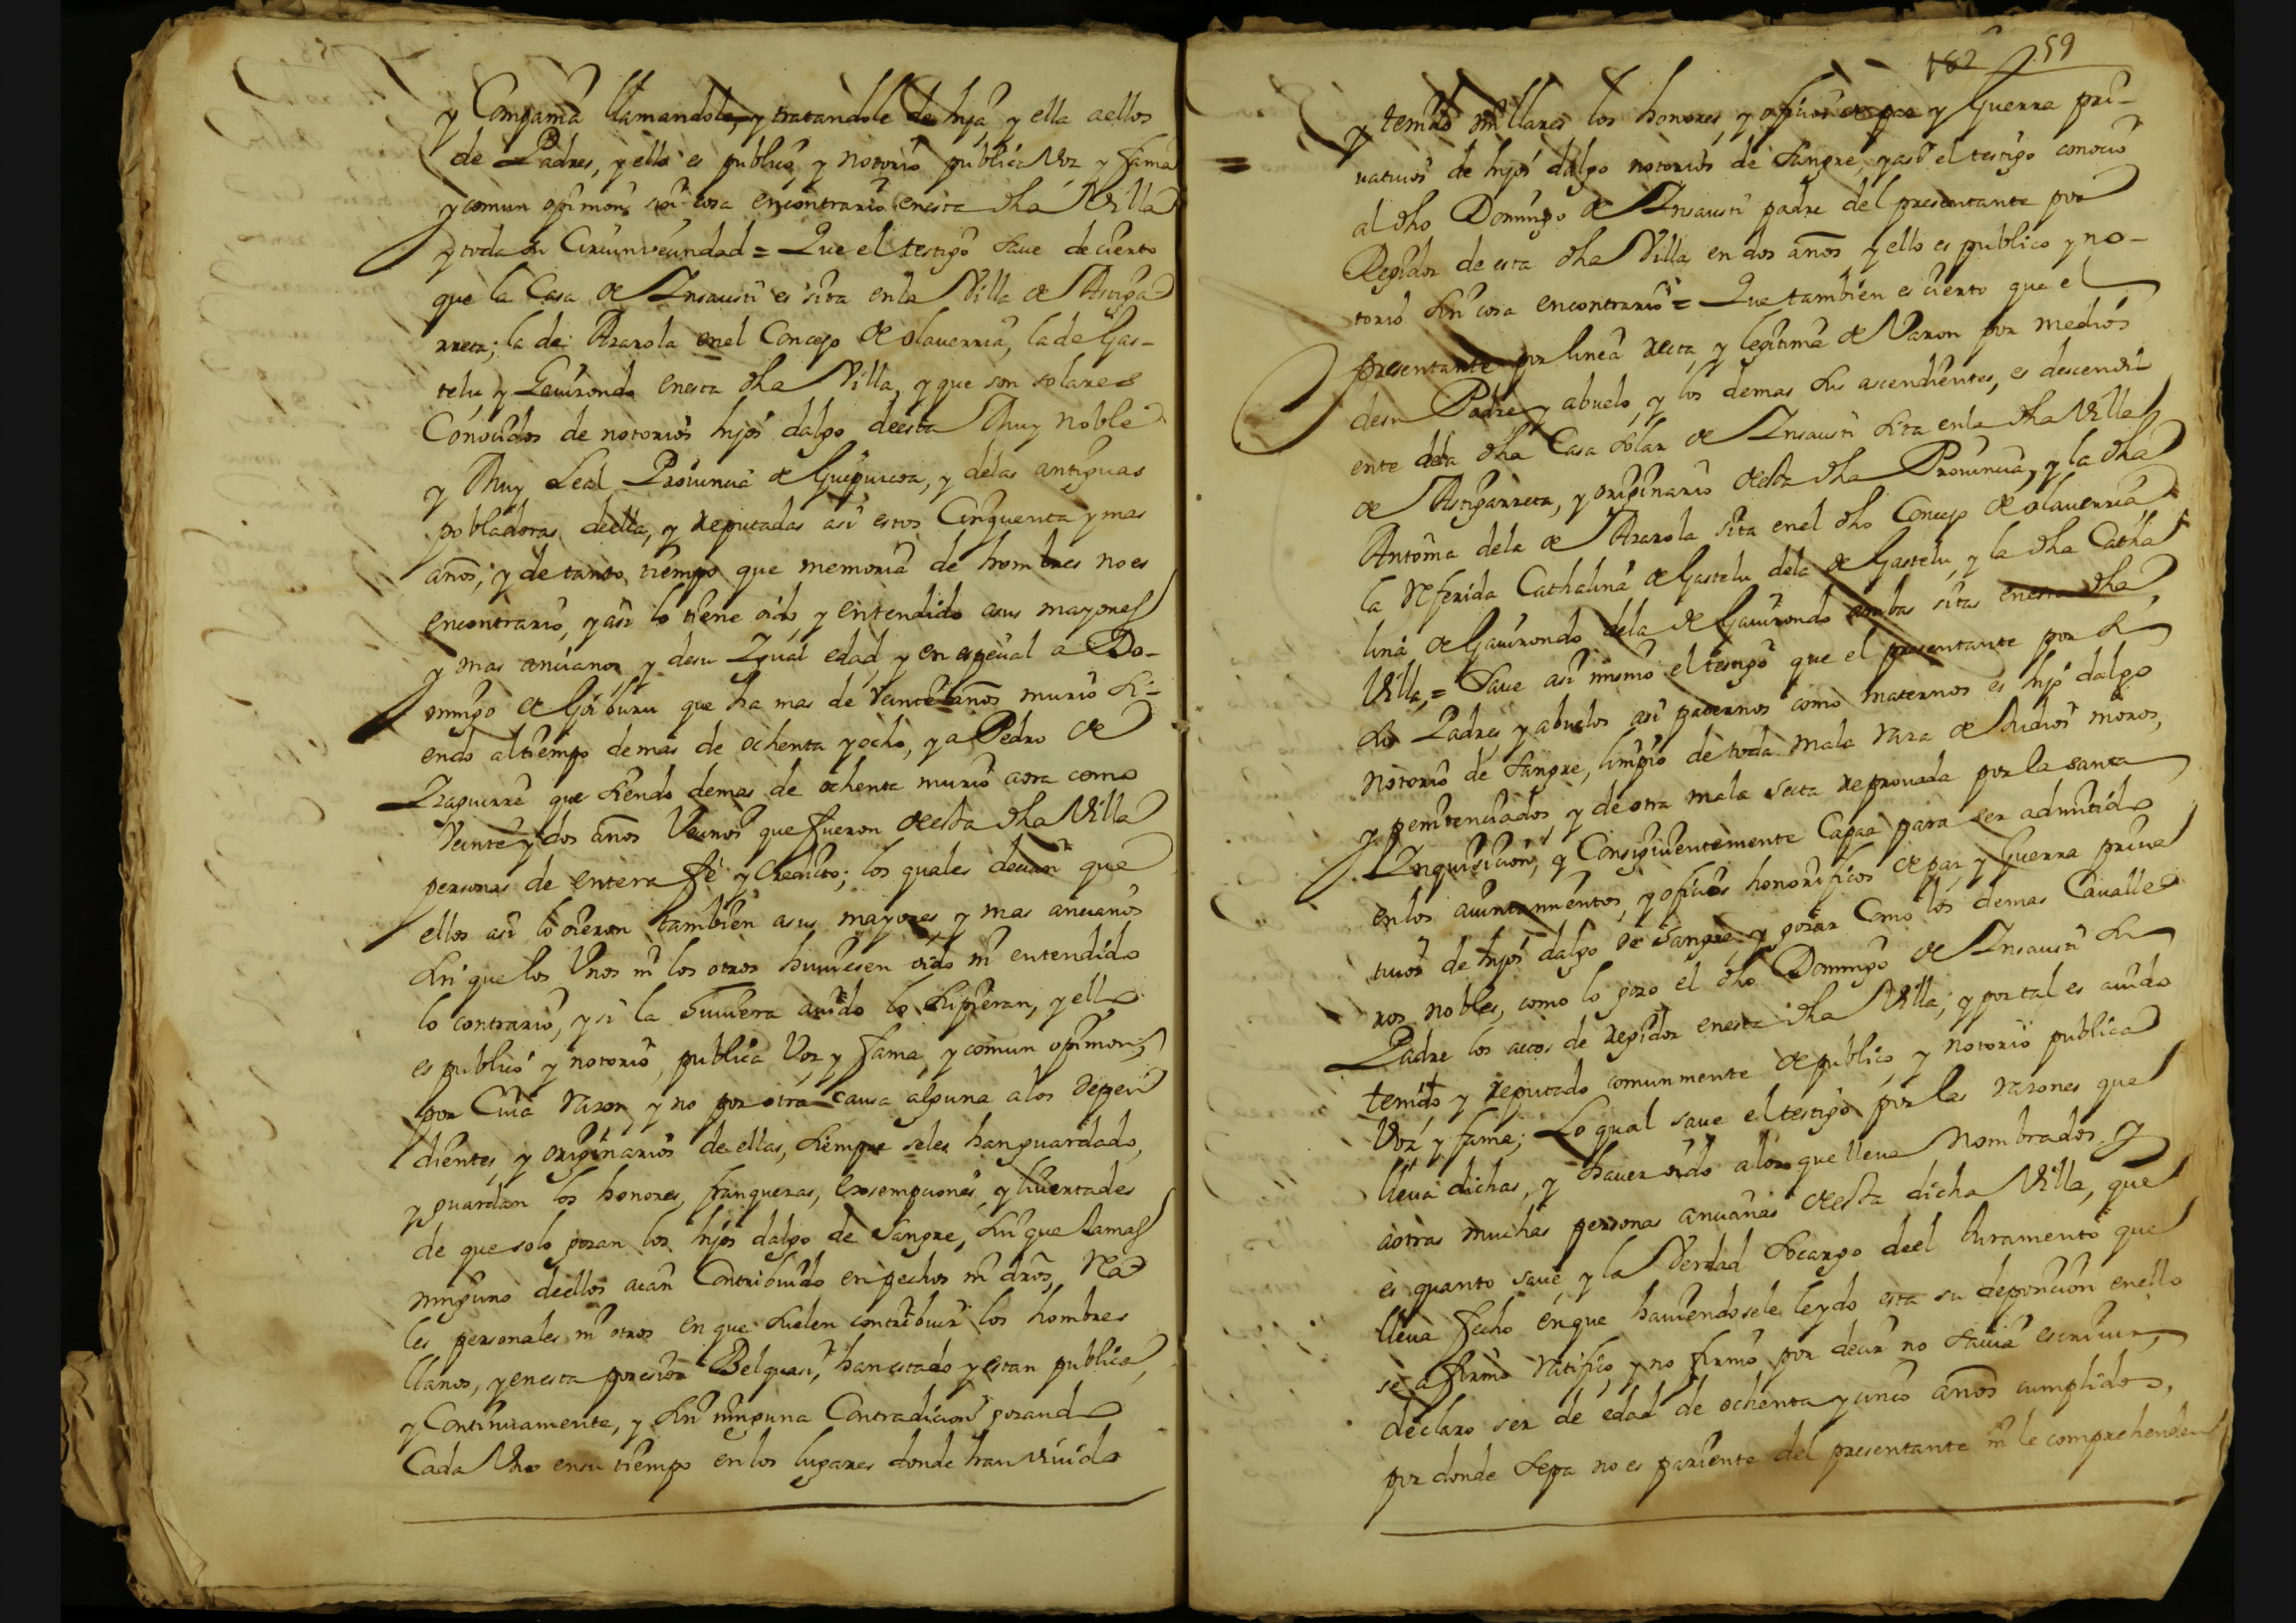 y Compania llamandole, y tratandole de hija, y ella aellos
de Padres, y ello es publico, y notorio publica Voz y fama
y comun opinion, sin cosa encontrario enesta dha Villa
y toda su Circunvecindad = Que el testigo save decierto
que la Casa de Insausti es sita enla Villa de Astiga
rreta; la de Ararola enel Concejo de olaverria, la de Gas-
telu y Gavirondo enesta dha Villa, y que son solares
Conocidos de notorios hijos dalgo deesta Muy noble
y Muy Leal Provincia de Guipuzcoa, y delas antiguas
pobladoras deella, y reputadas asi estos Cinquenta y mas
años; y de tanto tiempo que memoria de hombres no es
encontrario, y asi lo tiene oido, y entendido asus mayores
y mas ancianos y desu Igual edad, y en especial a Do-
mingo de Goiburu que ha mas de veinte años murio si-
endo altiempo demas de ochenta yocho, y a Pedro de
Izaguirre que siendo demas de ochenta murio aora como
Veinte y dos años Vecinos que fueron deesta dha Villa
personas de entera fe y Credito; los quales decian que
ellos asi lo oieron tambien asus mayores y mas ancianos
sin que los Unos ni los otros huviesen oido ni entendido
lo contrario, y si la huviera avido lo supieran, y ello
es publico y notorio, publica Voz y fama, y comun opinion,
por Cuia razon y no por otra causa alguna alos depen
dientes, y originarios de ellas, siempre seles hanguardado,
y guardan los honores, franquezas, exsempciones, y livertades
de que solo gozan los hijos dalgo de sangre, sin que Jamas
ninguno deellos aian Contribuido en pechos ni dros, Rea
les personales ni otros en que suelen contribuir los hombres
llanos, y enesta posesion Velquasi, han estado y estan publica,
y Continuamente, y sin ninguna Contradicion gozando
Cada Uno ensu tiempo enlos lugares donde han vivido
182 59
y tenido millares los honores, y oficios de paz y Guerra pri-
vativos de hijos dalgo notorios de sangre, y asi el testigo conocio
al dho Domingo de Insausti padre del presentante por
Regidor de esta dha Villa en dos años y ello es publico y no-
torio sin cosa encontrario = Que tambien es cierto que el
presentante por linea recta, y legitima de Varon por medios
desu Padre y abuelo, y los demas sus ascendientes, es descendi
ente dela dha Casa solar de Insausti sita enla dha Villa
de Astigarreta, y originario deesta dha Provincia, y la dha
Antonia dela de Ararola sita enel dho Concejo de olaverria
la referida Cathalina de Gastelu dela de Gastelu, y la dha Catha
lina de Gavirondo dela de Gavirondo ambas sitas enesta dha
Villa, = Save asi mismo el testigo que el presentante por si
sus Padres y abuelos asi paternos como maternos es hijo dalgo
notorio de sangre, limpio de toda mala raza de Judios moros,
y penitenciados y de otra mala secta reprovada por la santa
Inquisicion, y Consiguientemente Capaz para ser admitido
enlos aiuntamientos, y oficios honorificos de paz y Guerra priva
tivos de hijos dalgo de sangre y gozar Como los demas Cavalle
ros nobles, como lo gozo el dho Domingo de Insausti su
Padre los actos de regidor enesta dha Villa; y por tal es avido
tenido y reputado comunmente de publico, y notorio publica
Voz y fama; Lo qual save el testigo por las razones que
lleva dichas, y haver oido alos que lleva nombrados, y
aotras muchas personas ancianas deesta dicha Villa, que
es quanto save, y la Verdad socargo deel Juramento que
lleva fecho enque haviendosele leydo esta su deposicion enello
se afirmo ratifico, y no firmo por decir no savia escrivir,
declaro ser de edad de ochenta y cinco años cumplidos,
por donde sepa no es pariente del presentante ni le comprehenden